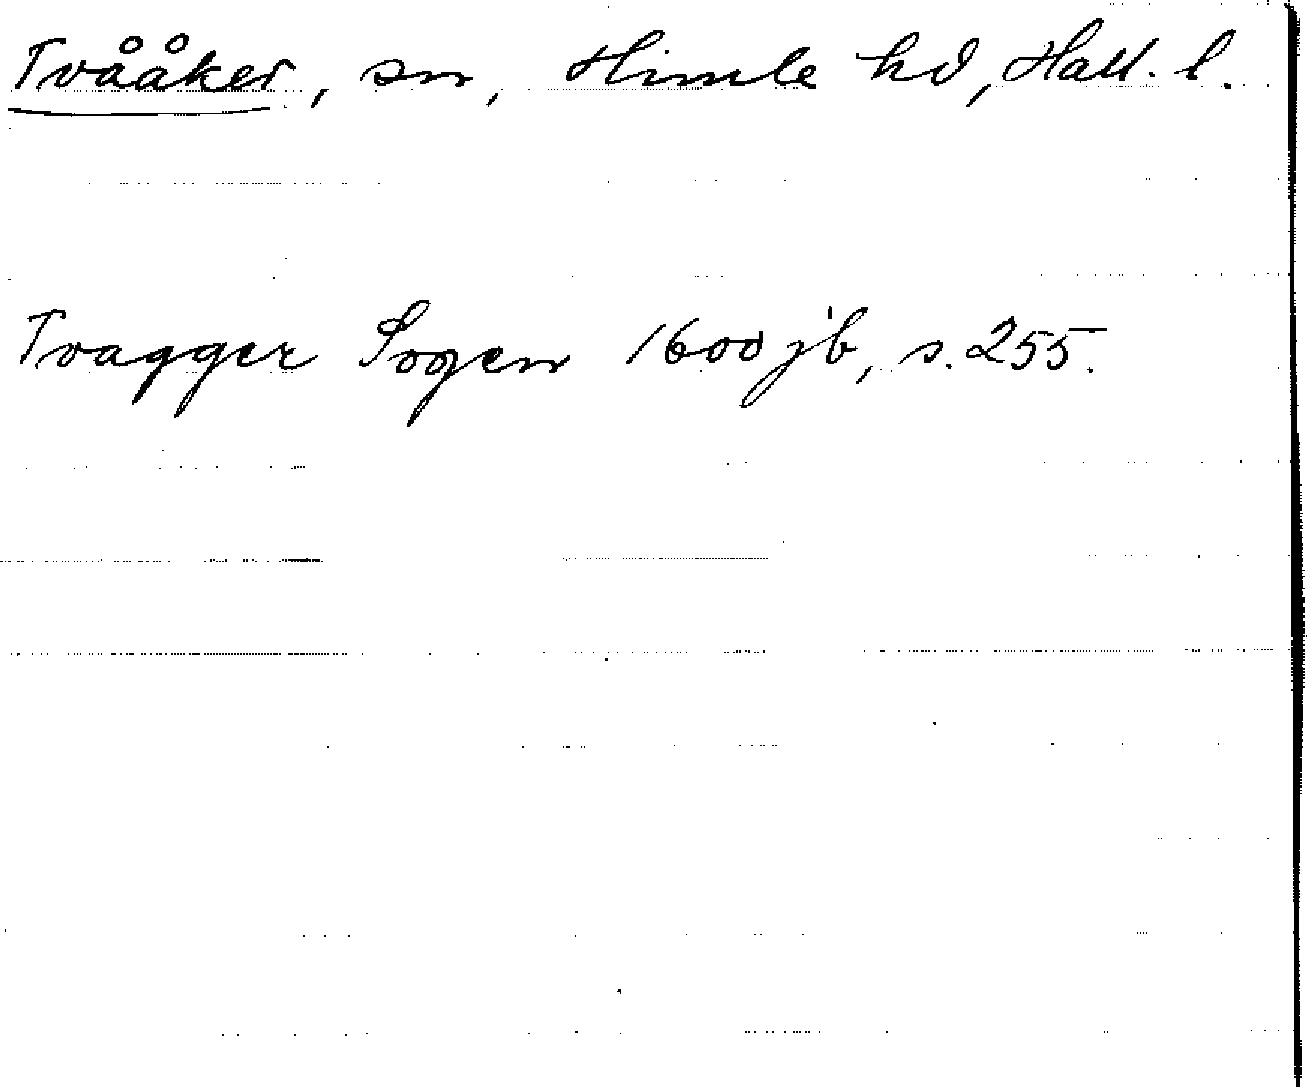 Tvååker, sn, Himle hd, Hall. l.
Tvagger Sogen 1600 jb, s. 255.